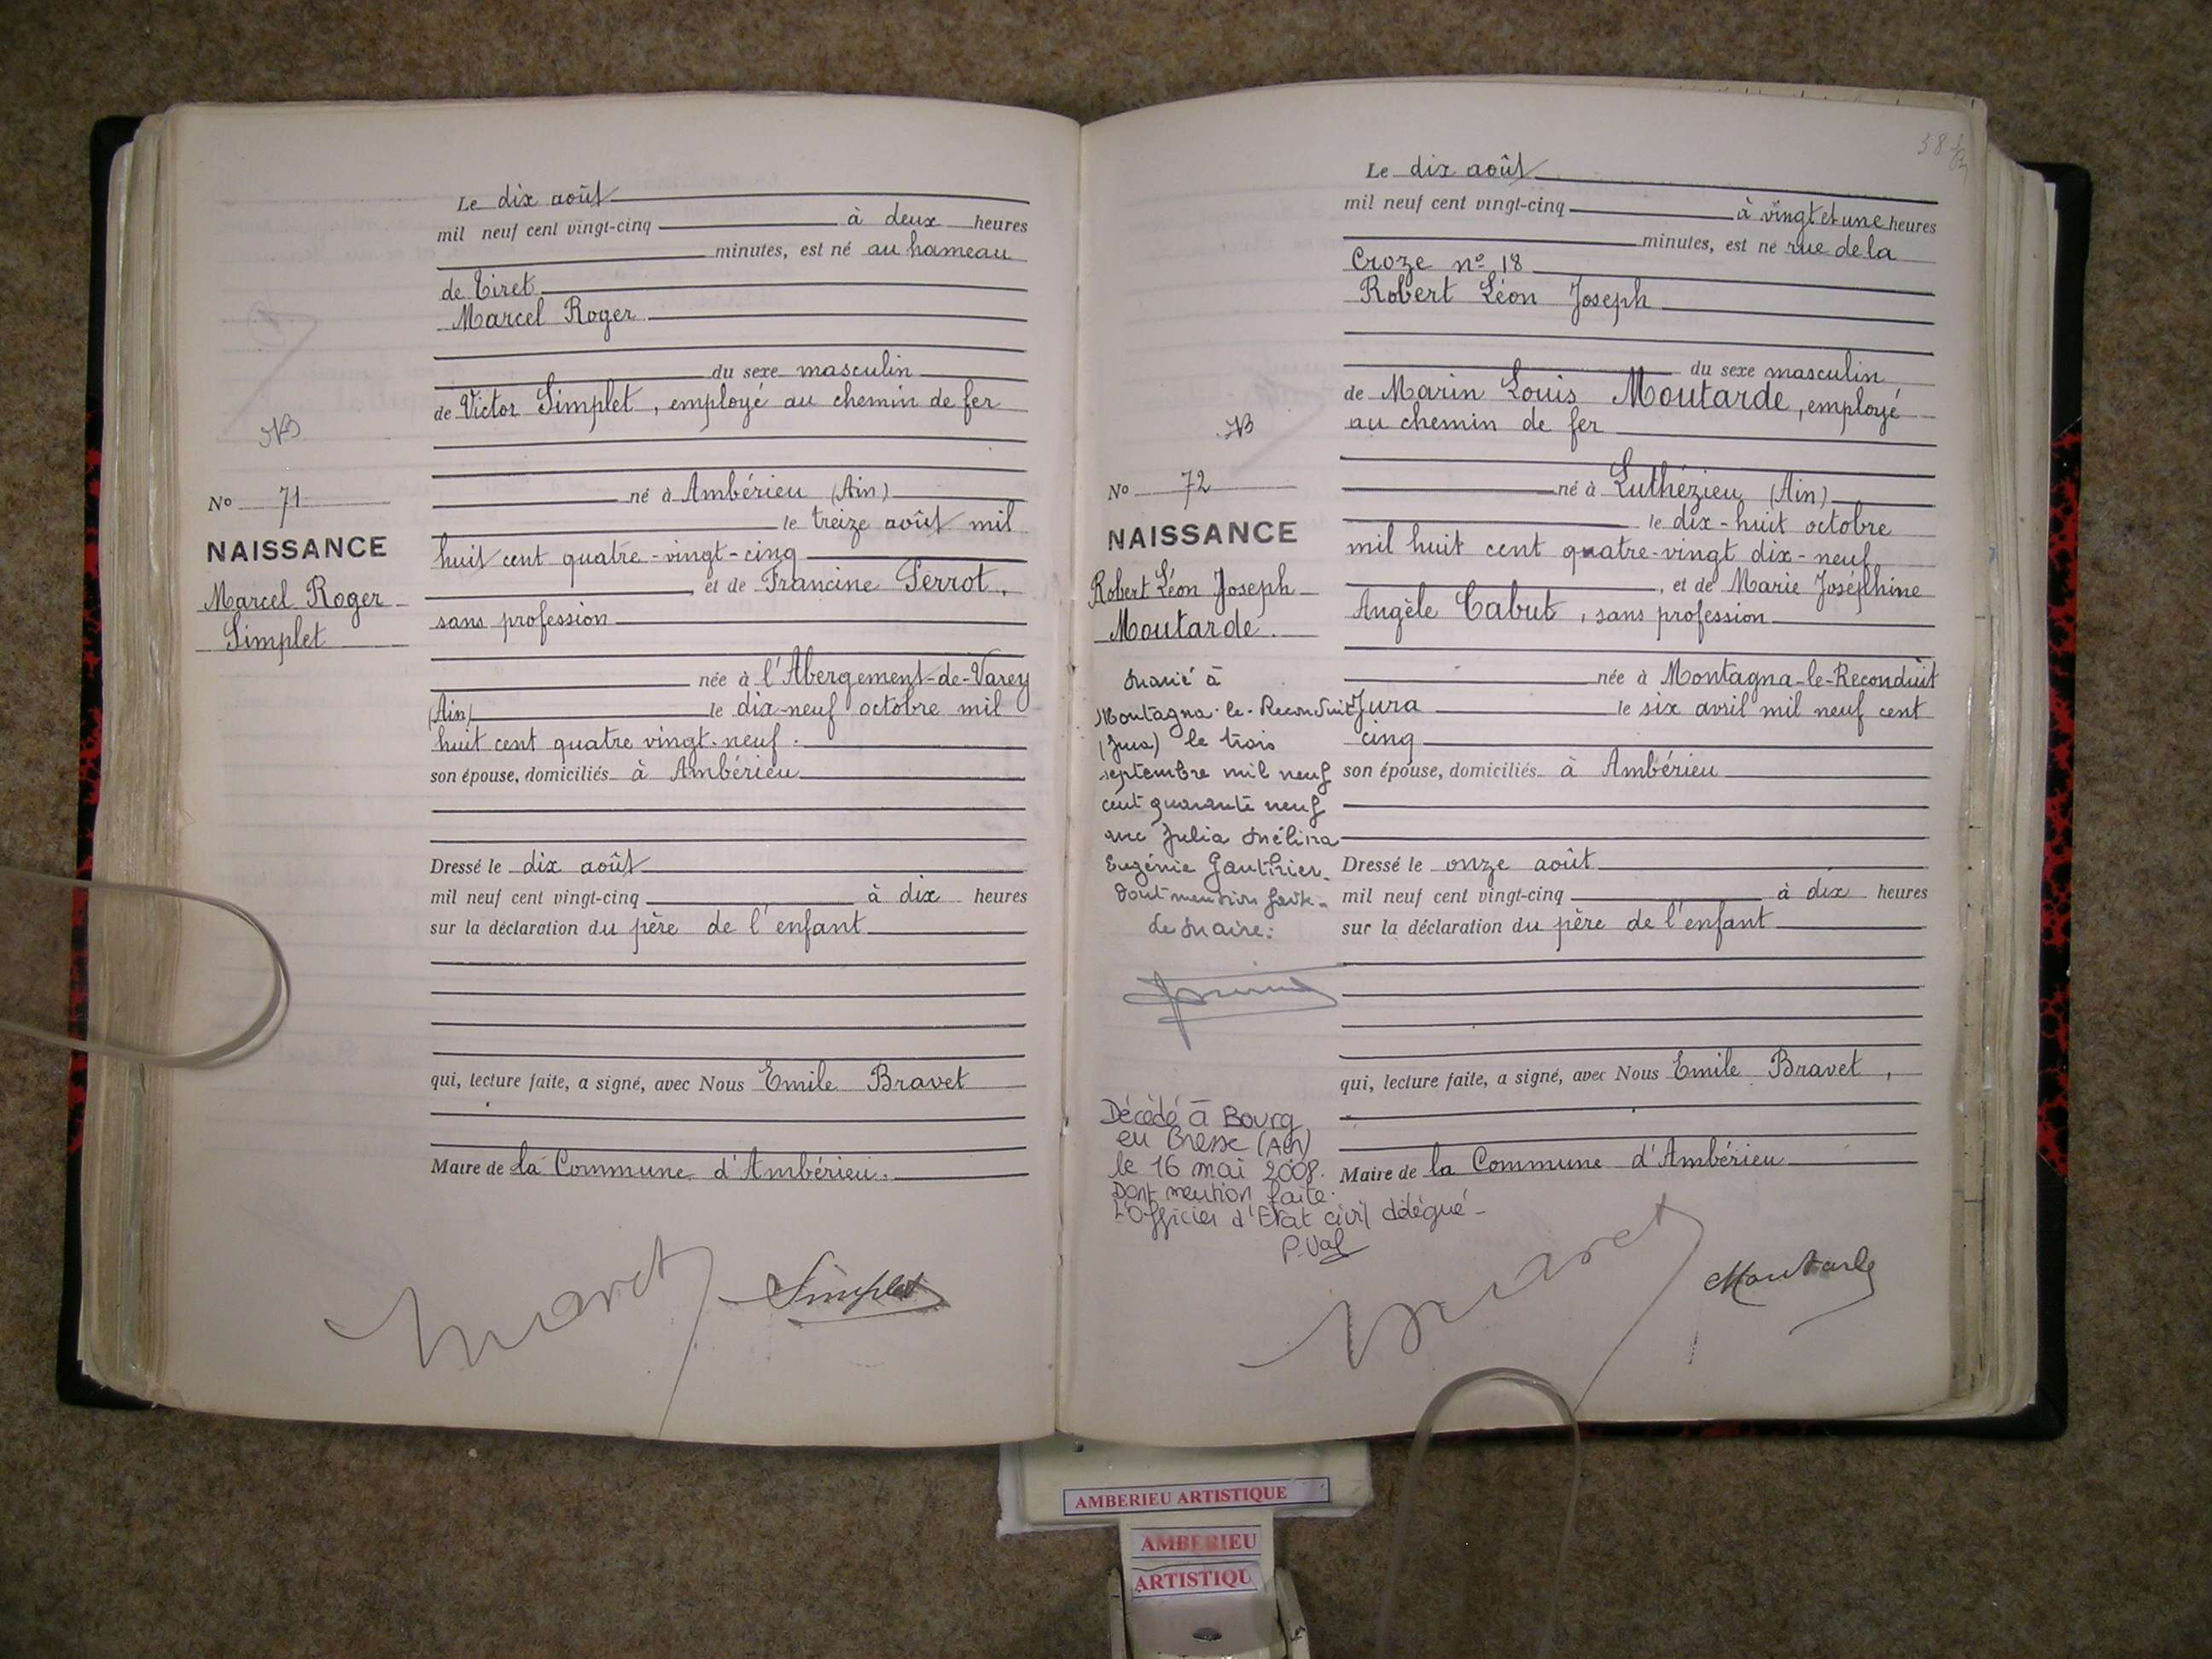 Le dix août
mil neuf cent vingt-cinq à deux heures
minutes, est né au hameau
de Tiret
Marcel Roger
du sexe masculin
de Victor Simplet, employé au chemin de fer
né à Ambérieu (Ain)
le treize août mil
huit cent quatre-vingt-cinq
et de Francine Perrot,
sans profession
née à l'Abergement-de-Varey
(Ain) le dix-neuf octobre mil
huit cent quatre vingt-neuf.
son épouse, domiciliés à Ambérieu
Dressé le dix août
mil neuf cent vingt-cinq à dix heures
sur la déclaration du père de l'enfant
qui, lecture faite, a signé, avec Nous Emile Bravet
Maire de la Commune d'Ambérieu.
Simplet
NB
No 71
NAISSANCE
Marcel Roger
Simplet
38
Le dix août
mil neuf cent vingt-cinq à vingt et une heures
minutes, est né rue de la
Croze nº 18
Robert Léon Joseph
du sexe masculin
de Marin Louis Moutarde, employé
au chemin de fer
né à Luthézieu (Ain)
le dix-huit octobre
mil huit cent quatre-vingt dix-neuf
, et de Marie Joséphine
Angèle Cabut, sans profession
née à Montagna-le-Reconduit
Jura le six avril mil neuf cent
cinq
son épouse, domiciliés à Ambérieu
Dressé le onze août
mil neuf cent vingt-cinq à dix heures
sur la déclaration du père de l'enfant
qui, lecture faite, a signé, avec Nous Emile Bravet,
Maire de la Commune d'Ambérieu
Moutarde
NB
No 72
NAISSANCE
Robert Léon Joseph
Moutarde.
Marié à
Montagna-le-Reconduit
(Jura) le trois
septembre mil neuf
cent quarante neuf
avec Julia Mélina
Eugénie Gauthier.
Dont mention faite.
Le Maire:
Décédé à Bourg
en Bresse (Ain)
le 16 mai 2008.
Dont mention faite.
L'Officier d'Etat civil délégué
P. Val
AMBERIEU ARTISTIQUE
AMBERIEU
ARTISTIQU